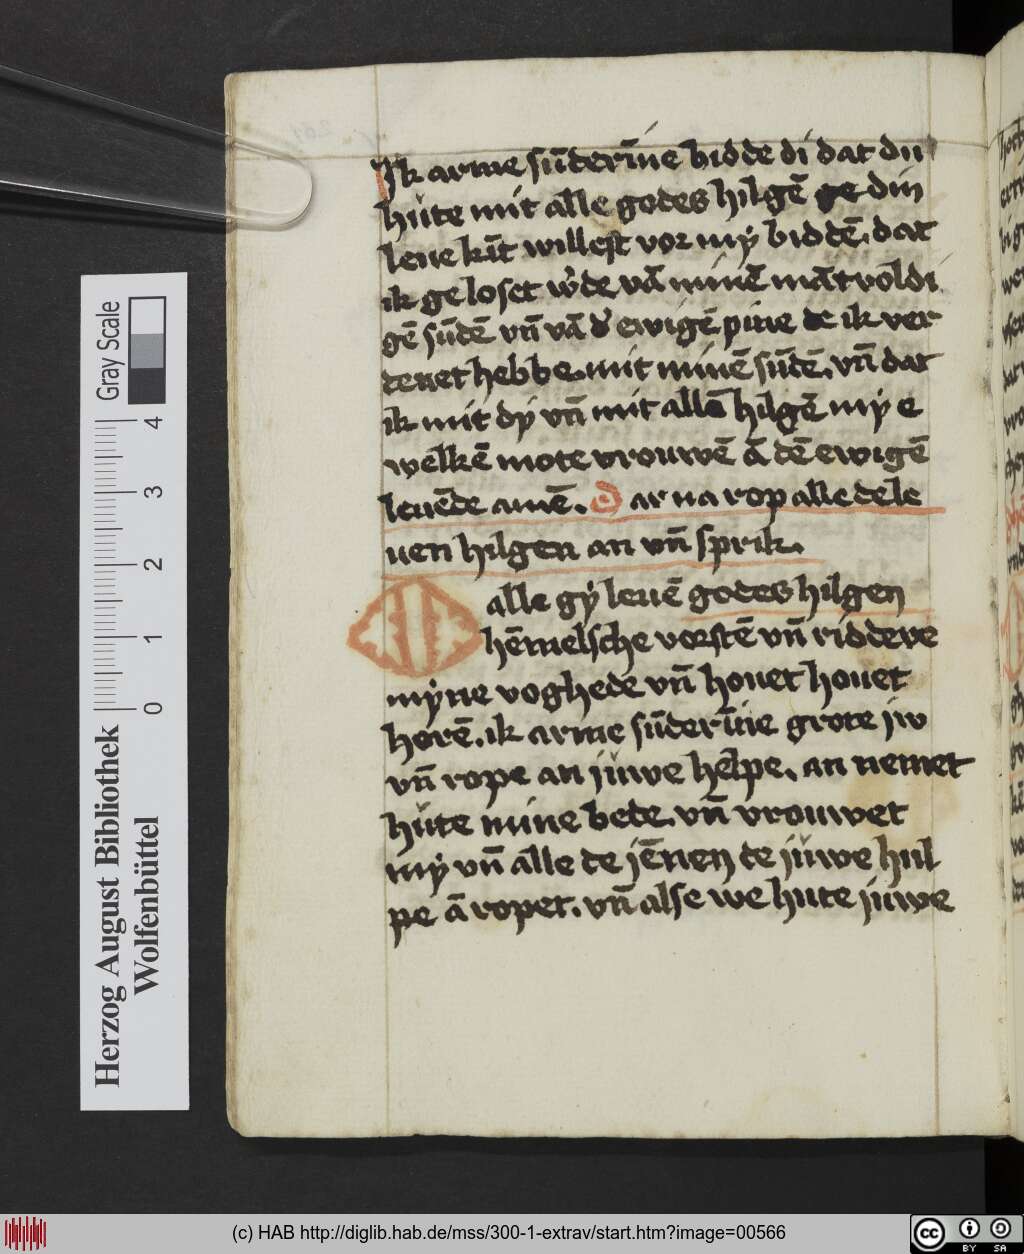 Ik arme sūderīne bidde di dat du
hute mit alle godes hilgē ge din
leue kīt willest vor mÿ biddē. dat
ik ge loset w᷑de vā minē mātvoldi
gē sūdē vn̄ vā d᷑ ewigē pine de ik ver
denet hebbe. mit minē sūdē. vn̄ dat
ik mit dÿ vn̄ mit allē hilgē mÿ e
welkē mote vrouwē ā dē ewigē
leuēde amē. dar na rop alle de le
uen hilgen an vn̄ sprik.
O alle gÿ leuē godes hilgen
hēmelsche vorstē vn̄ riddere
mÿne voghede vn̄ houet houet
herē. ik arme sūderīne grote jw
vn̄ rope an juwe helpe. an nemet
hute mine bede. vn̄ vrouwet
mÿ vn̄ alle de jēnen de juwe hul
pe ā ropet. vn̄ alse we hute juwe
Herzog August Bibliothek
Wolfenbüttel
Gray Scale
0 1 2 3 4
(c) HAB http://diglib.hab.de/mss/300-1-extrav/start.htm?image=00566
cc BY SA